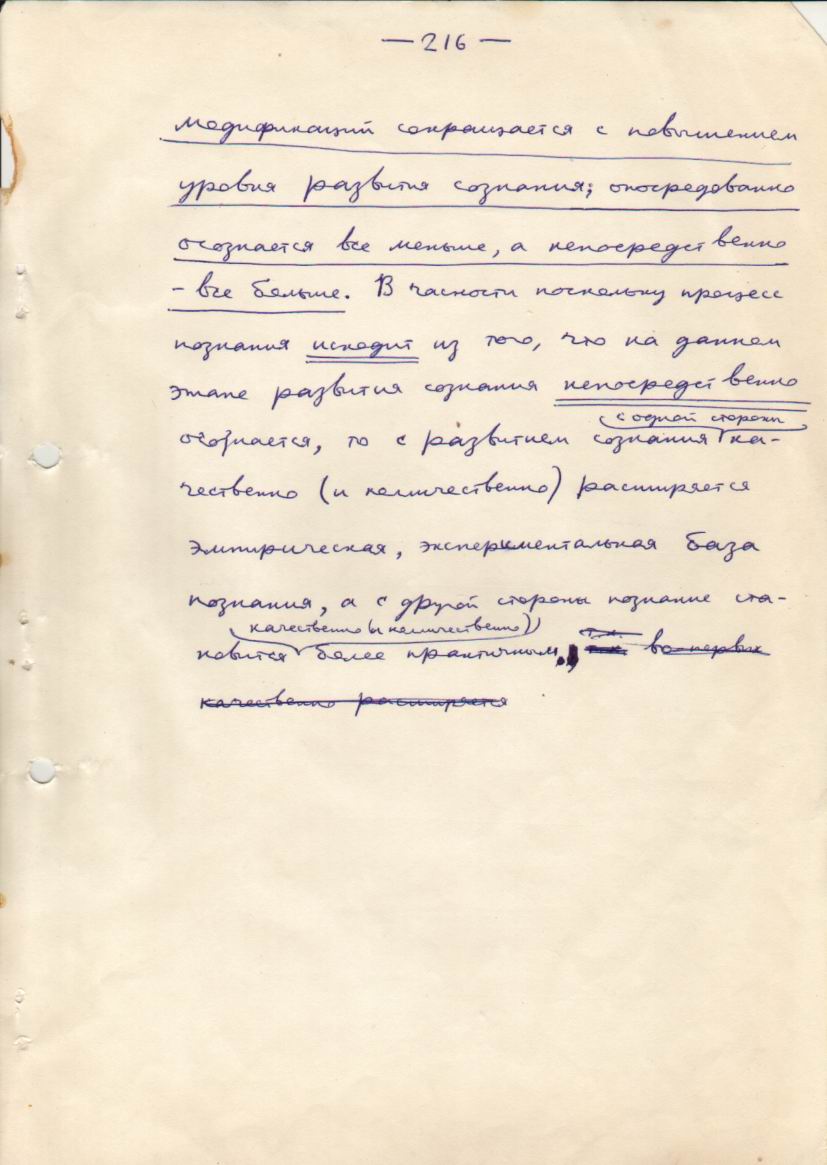 — 216 —
модификаций сокращается с повышением
уровня развития сознания; опосредованно
осознается все меньше, а непосредственно
– все больше. В часности поскольку процесс
познания исходит из того, что на данном
этапе развития сознания непосредственно
с одной стороны
осознается, то с развитием сознания ка-
чественно (и количественно) расширяется
эмпирическая, экспериментальная база
познания, а с другой стороны познание ста-
качественно (и количественно)
новится более практичным, во-первых
качественно расширяется